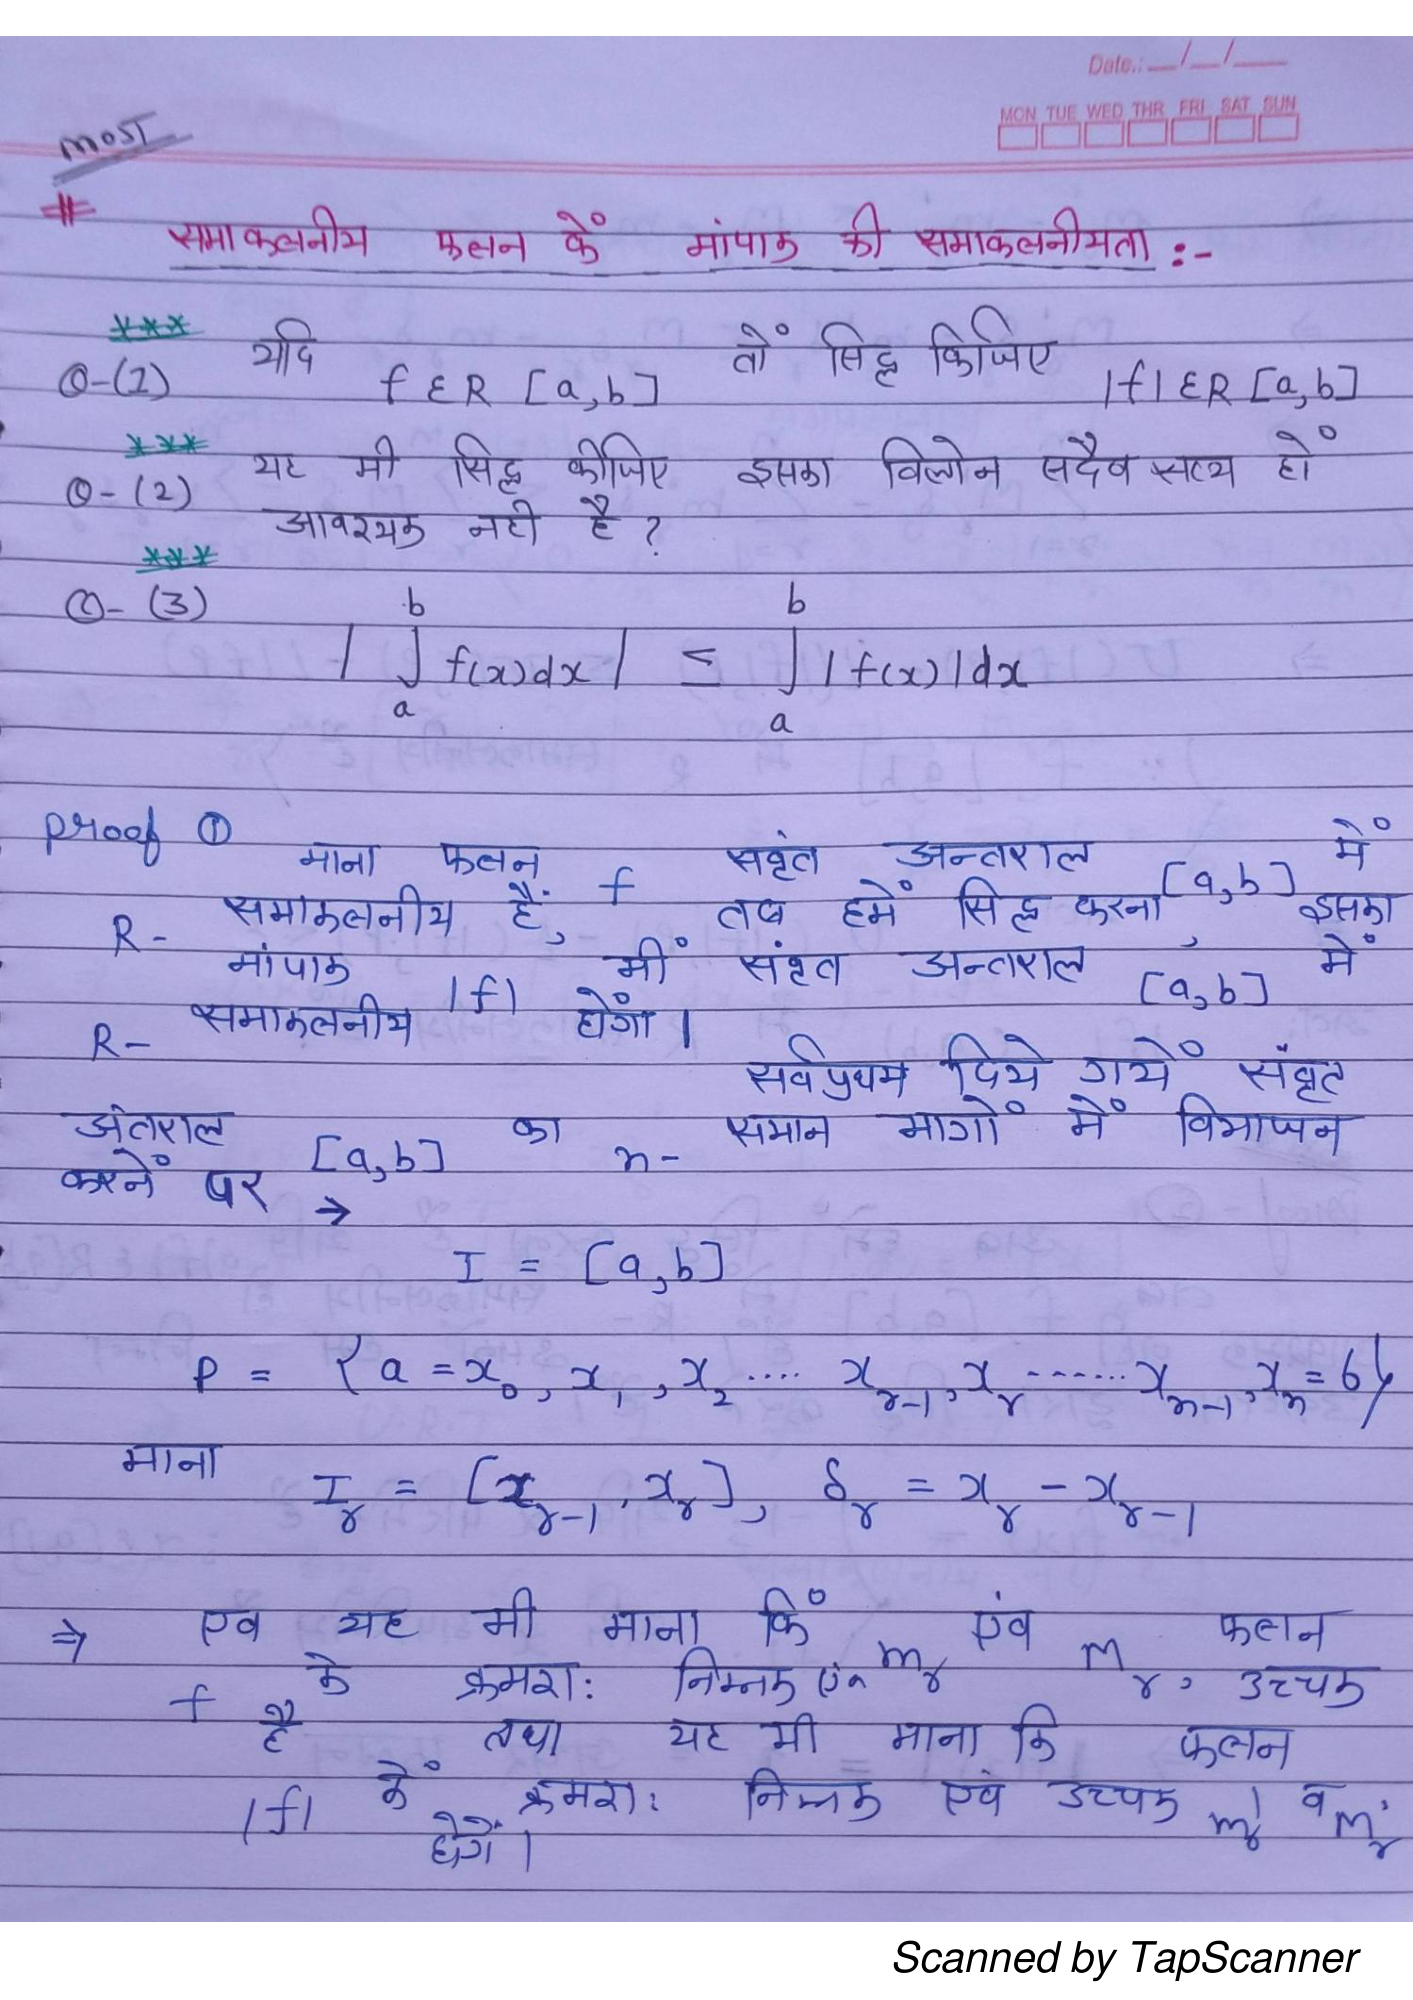 Date.: __/__/__
MON TUE WED THR FRI SAT SUN
MOST
# समाकलनीय फलन कें मांपाक की समाकलनीयता :-
***
Q-(1) यदि f ER [a,b] तों सिद्ध किजिए |f| ER [a,b]
***
Q-(2) यह भी सिद्ध कीजिए इसका विलोन सदैव सत्य हों
आवश्यक नही है ?
***
Q-(3) | ∫ₐᵇ f(x)dx | ≤ ∫ₐᵇ |f(x)|dx
Proof ① माना फलन f सवृंत अन्तराल [a,b] में
R- समाकलनीय हैं, तब हमें सिद्ध करना, इसका
मांपाक |f| भीं संवृत अन्तराल [a,b] में
R- समाकलनीय होगां |
सर्वप्रथम दिये गयें संवृत
अंतराल [a,b] का n- समान भागों में विभाजन
करनें पर →
I = [a,b]
P = {a = x₀, x₁, x₂ .... xᵣ₋₁, xᵣ ...... xₙ₋₁, xₙ = b}
माना Iᵣ = [xᵣ₋₁, xᵣ], δᵣ = xᵣ - xᵣ₋₁
⇒ एव यह भी माना किं mᵣ एंव Mᵣ, फलन
f के क्रमश: निम्नक एंव उच्चक
है तथा यह भी माना कि फलन
|f| कें क्रमश: निम्नक एवं उच्चक mᵣ' व Mᵣ'
होगें |
Scanned by TapScanner